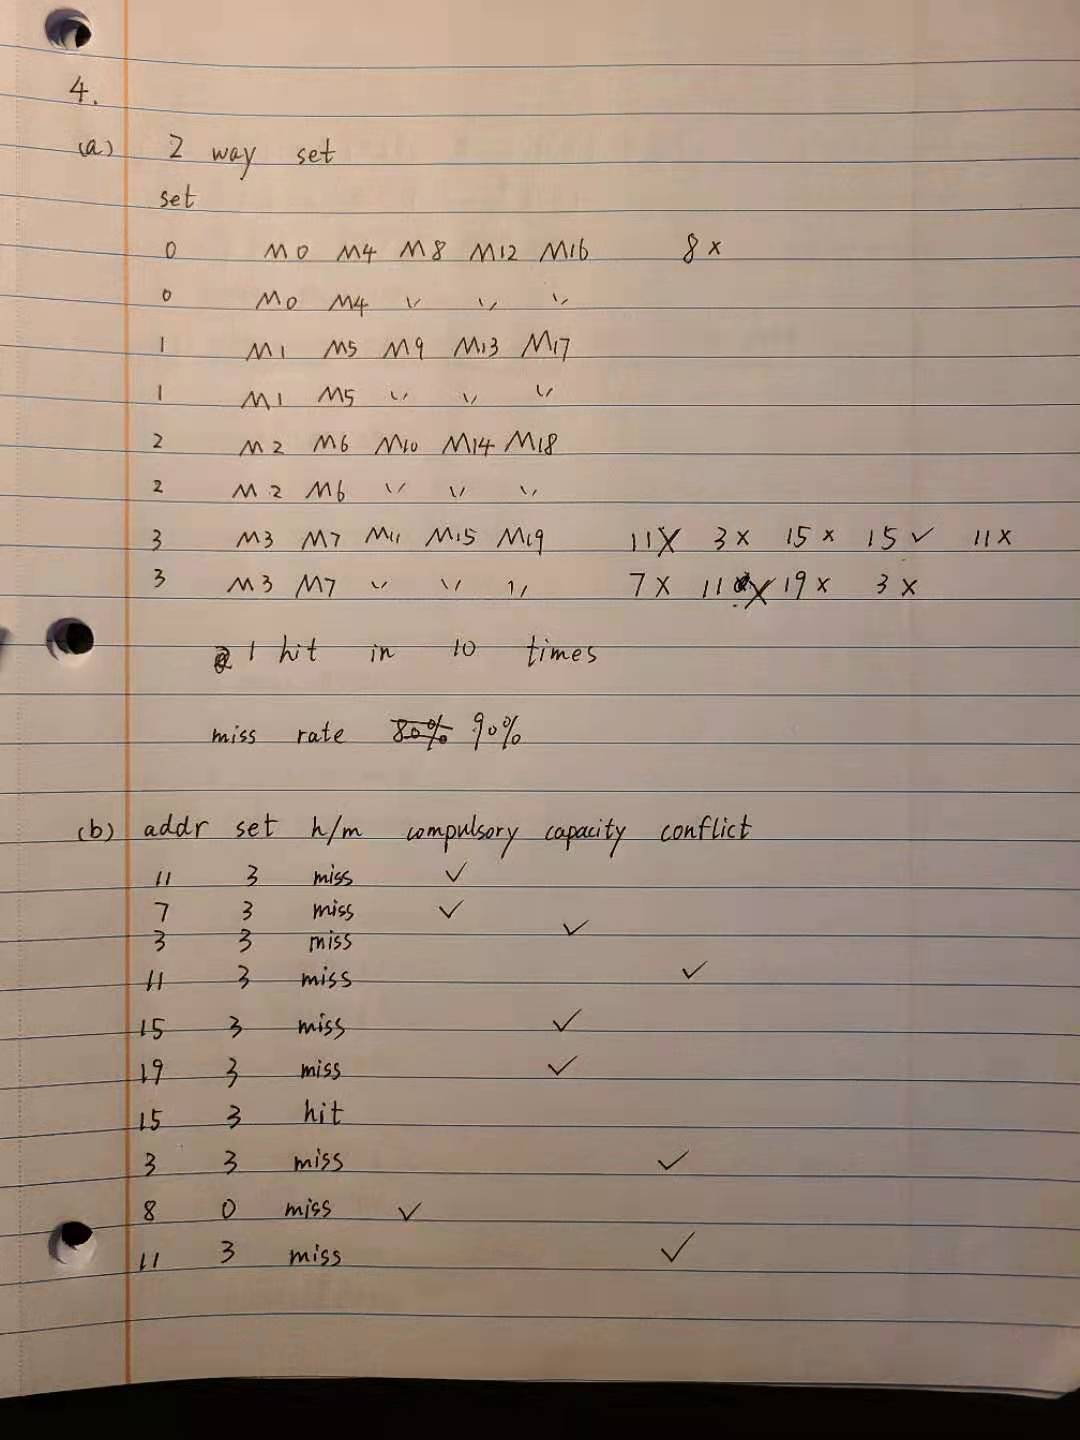 4.
(a) 2 way set
set
0 M0 M4 M8 M12 M16 8 ×
0 M0 M4 〃 〃 〃
1 M1 M5 M9 M13 M17
1 M1 M5 〃 〃 〃
2 M2 M6 M10 M14 M18
2 M2 M6 〃 〃 〃
3 M3 M7 M11 M15 M19 11 × 3 × 15 × 15 ✓ 11 ×
3 M3 M7 〃 〃 〃 7 × 11 × 19 × 3 ×
1 hit in 10 times
miss rate 80% 90%
(b) addr set h/m compulsory capacity conflict
11 3 miss ✓
7 3 miss ✓
3 3 miss ✓
11 3 miss ✓
15 3 miss ✓
19 3 miss ✓
15 3 hit
3 3 miss ✓
8 0 miss ✓
11 3 miss ✓